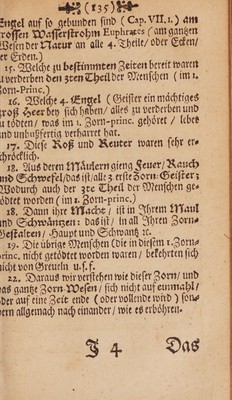 (135)
Engel auf so gebunden sind (Cap. VII. 1.) am
grossen Wasserstrohm Euphrates (am gantzen
Wesen der Natur an alle 4. Theile / oder Ecken /
der Erden.
15. Welche zu bestimmten Zeiten bereit waren
zu verderben den 3ten Theil der Menschen (im 1.
Zorn-Princ.)
16. Welche 4. Engel (Geister ein mächtiges
groß Heer bey sich haben / alles zu verderben und
zu tödten / was im 1. Zorn-princ. gehöret / lebet
und unbußfertig verharret hat.
17. Diese Roß und Reuter waren sehr er-
schröcklich.
18. Aus deren Mäulern gieng Feuer / Rauch
und Schwefel / das ist / alle 3 erste Zorn-Geister;
Wodurch auch der 3te Theil der Menschen ge-
tödtet worden (im 1. Zorn-princ.)
18. Dann ihre Mache / ist in Ihrem Maul
und Schwäntzen: das ist / in all Ihren Zorn-
Gestalten / Haupt und Schwantz ꝛc.
19. Die übrige Menschen (die in diesem 1. Zorn-
princ. nicht getödtet worden waren / bekehrten sich
nicht von Greueln u. s. f.
22. Daraus wir verstehen wie dieser Zorn / und
das gantze Zorn-Wesen / sich nicht auf einmahl /
oder auf eine Zeit ende (oder vollende wird) son-
dern allgemach nach einander / wie es erhöhren.
J 4 Das